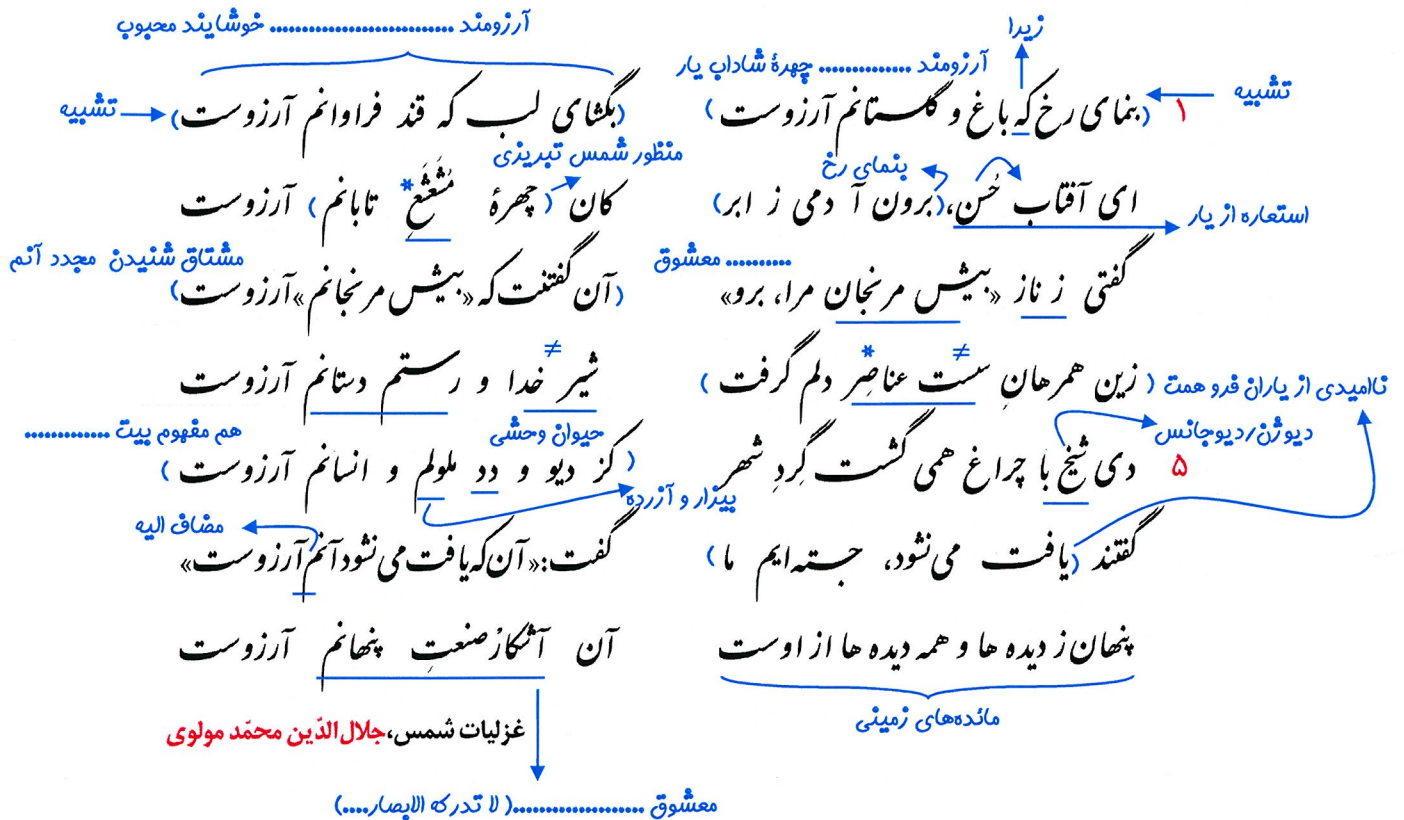 آرزومند .............................. خوشایند محبوب
زیرا
آرزومند .............. چهرهٔ شاداب یار
تشبیه
۱ (بنمای رخ که باغ و گلستانم آرزوست)
(بگشای لب که قند فراوانم آرزوست)
تشبیه
بنمای رخ
منظور شمس تبریزی
ای آفتاب حُسن، (برون آ دمی ز ابر)
کان (چهرهٔ مُشَعْشَعِ* تابانم) آرزوست
استعاره از یار
.......... معشوق
مشتاق شنیدن مجدد آنم
گفتی ز ناز «بیش مرنجان مرا، برو»
(آن گفتنت که «بیش مرنجانم» آرزوست)
≠ * ≠
زین همرهانِ سست عناصِر دلم گرفت)
شیر خدا و رستم دستانم آرزوست
ناامیدی از یاران فرو همت (
دیوژن/دیوجانس
حیوان وحشی
هم مفهوم بیت .............
۵ دی شیخ با چراغ همی گشت گِردِ شهر
(کز دیو و دد ملولم و انسانم آرزوست)
بیزار و آزرده
مضاف الیه
گفتند (یافت می نشود، جسته ایم ما)
گفت: «آن که یافت می نشود آنم آرزوست»
پنهان ز دیده ها و همه دیده ها از اوست
آن آشکارْ صنعتِ پنهانم آرزوست
مائده‌های زمینی
غزلیات شمس، جلال الدّین محمّد مولوی
معشوق ......................( لا تدرکه الابصار....)